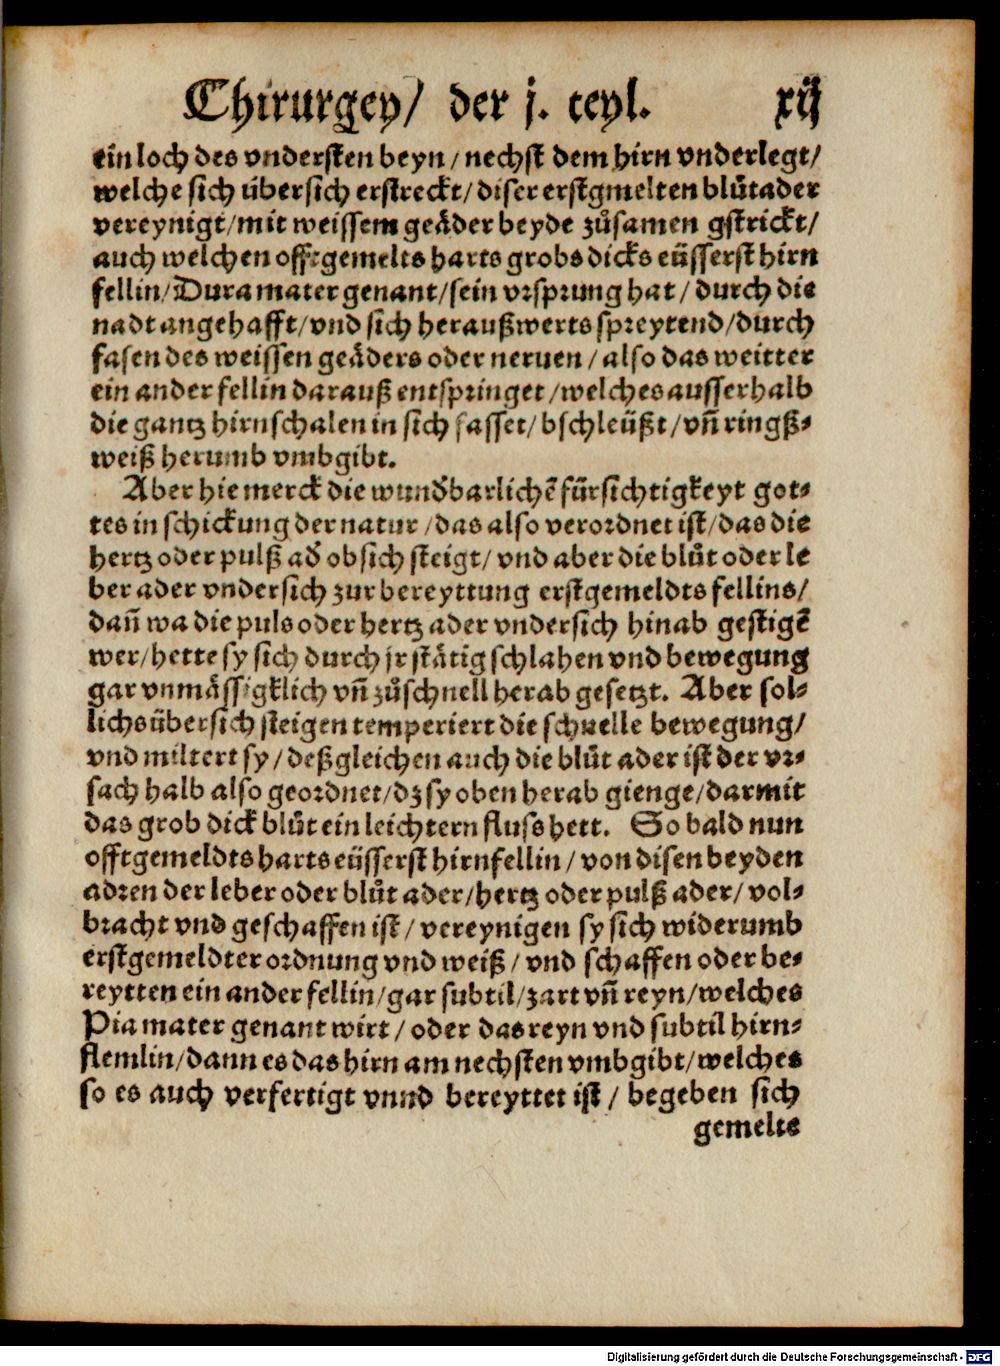 Chirurgey/ der j. teyl. xij
ein loch des vndersten beyn/nechst dem hirn vnderlegt/
welche sich übersich erstreckt/diser erstgmelten blůtader
vereynigt/mit weissem geåder beyde zůsamen gstrickt/
auch welchen offtgemelts harts grobs dicks eüsserst hirn
fellin/Dura mater genant/sein vrsprung hat/durch die
nadt angehafft/vnd sich heraußwerts spreytend/durch
fasen des weissen geåders oder neruen/also das weitter
ein ander fellin darauß entspringet/welches ausserhalb
die gantz hirnschalen in sich fasset/bschleüßt/vñ ringß⸗
weiß herumb vmbgibt.
Aber hie merck die wundbarlichẽ fürsichtigkeyt got⸗
tes in schickung der natur/das also verordnet ist/das die
hertz oder pulß ad obsich steigt/vnd aber die blůt oder le
ber ader vndersich zur bereyttung erstgemeldts fellins/
dañ wa die puls oder hertz ader vndersich hinab gestigẽ
wer/hette sy sich durch jr ståtig schlahen vnd bewegung
gar vnmåssigklich vñ zůschnell herab gesetzt. Aber sol⸗
lichs übersich steigen temperiert die schnelle bewegung/
vnd miltert sy/deßgleichen auch die blůt ader ist der vr⸗
sach halb also geordnet/dz sy oben herab gienge/darmit
das grob dick blůt ein leichtern fluss hett. So bald nun
offtgemeldts harts eüsserst hirnfellin/von disen beyden
adren der leber oder blůt ader/hertz oder pulß ader/vol⸗
bracht vnd geschaffen ist/vereynigen sy sich widerumb
erstgemeldter ordnung vnd weiß/vnd schaffen oder be⸗
reytten ein ander fellin/gar subtil/zart vñ reyn/welches
Pia mater genant wirt/oder das reyn vnd subtil hirn⸗
flemlin/dann es das hirn am nechsten vmbgibt/welches
so es auch verfertigt vnnd bereyttet ist/begeben sich
gemelts
Digitalisierung gefördert durch die Deutsche Forschungsgemeinschaft - DFG